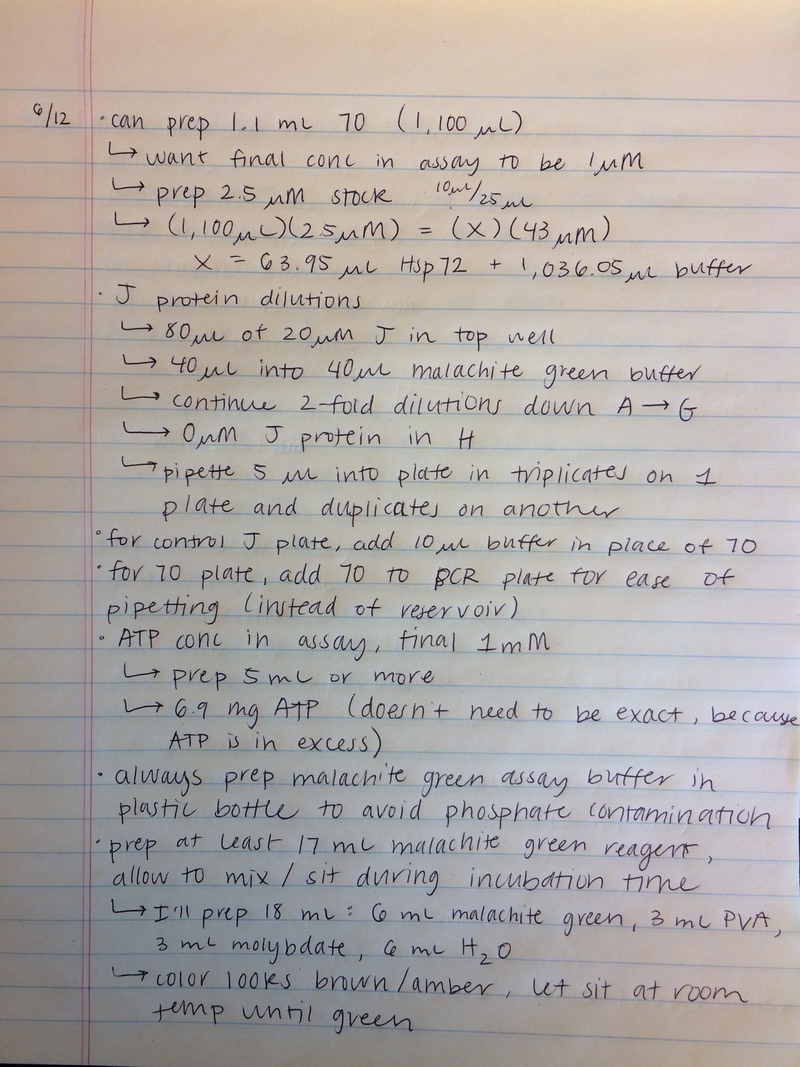 6/12 · can prep 1.1 mL 70 (1,100 µL)
↳ want final conc in assay to be 1µM
↳ prep 2.5 µM stock 10µL/25µL
↳ (1,100µL)(2.5µM) = (x)(43µM)
x = 63.95 µL Hsp72 + 1,036.05µL buffer
· J protein dilutions
↳ 80µL of 20µM J in top well
↳ 40µL into 40µL malachite green buffer
↳ continue 2-fold dilutions down A → G
↳ 0µM J protein in H
↳ pipette 5 µL into plate in triplicates on 1
plate and duplicates on another
· for control J plate, add 10µL buffer in place of 70
· for 70 plate, add 70 to PCR plate for ease of
pipetting (instead of reservoir)
· ATP conc in assay, final 1mM
↳ prep 5 mL or more
↳ 6.9 mg ATP (doesn't need to be exact, because
ATP is in excess)
· always prep malachite green assay buffer in
plastic bottle to avoid phosphate contamination
· prep at least 17 mL malachite green reagent,
allow to mix / sit during incubation time
↳ I'll prep 18 mL: 6 mL malachite green, 3 mL PVA,
3 mL molybdate, 6 mL H₂O
↳ color looks brown/amber, let sit at room
temp until green